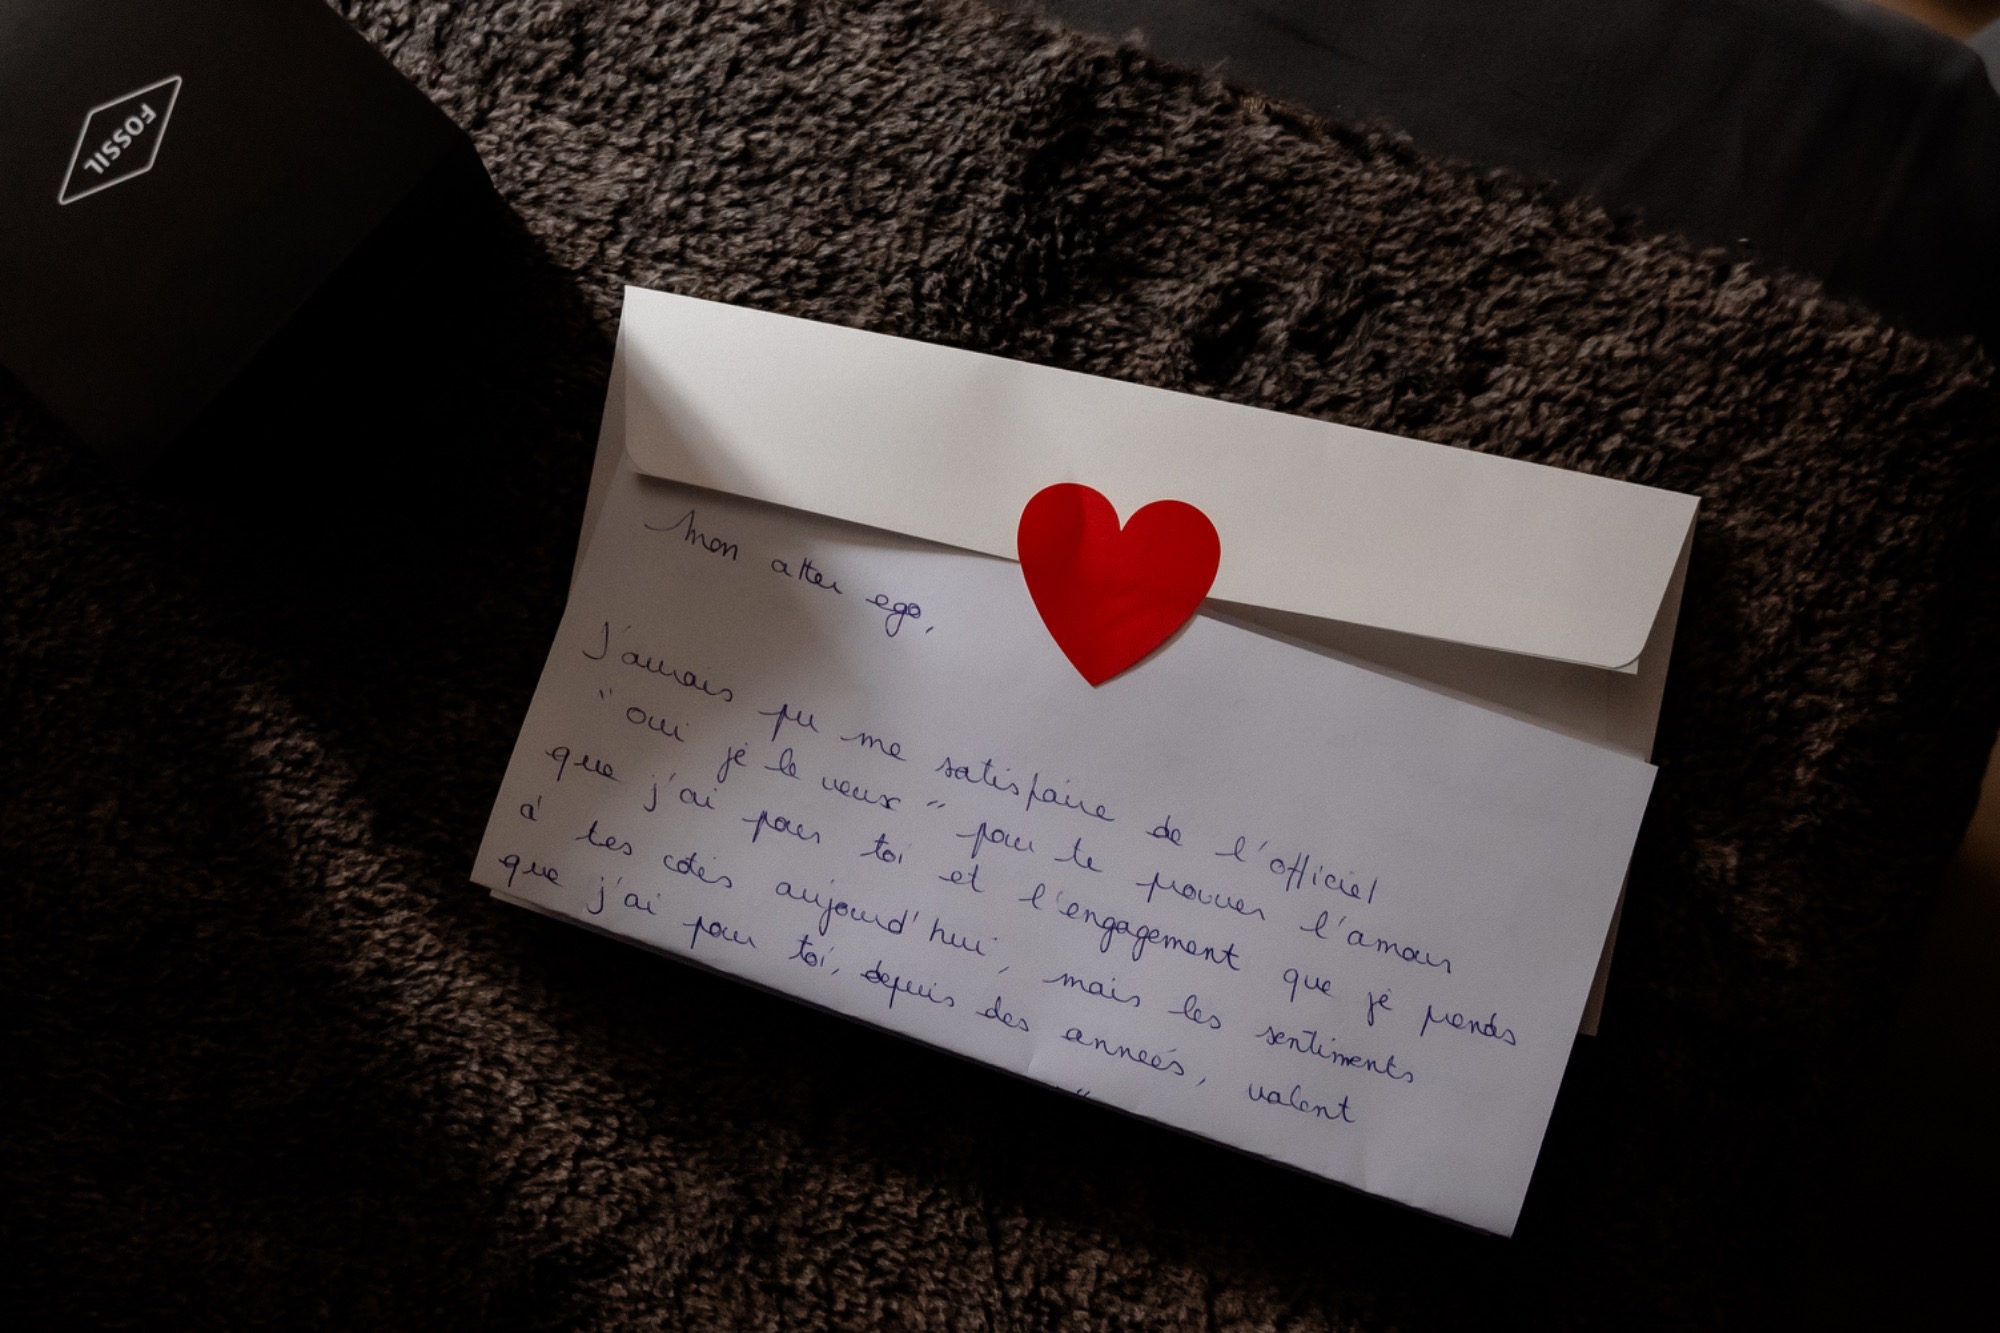 FOSSIL
Mon alter ego,
J'aurais pu me satisfaire de l'officiel
"oui je le veux" pour te prouver l'amour
que j'ai pour toi et l'engagement que je prends
à tes cotés aujourd'hui, mais les sentiments
que j'ai pour toi, depuis des années, valent